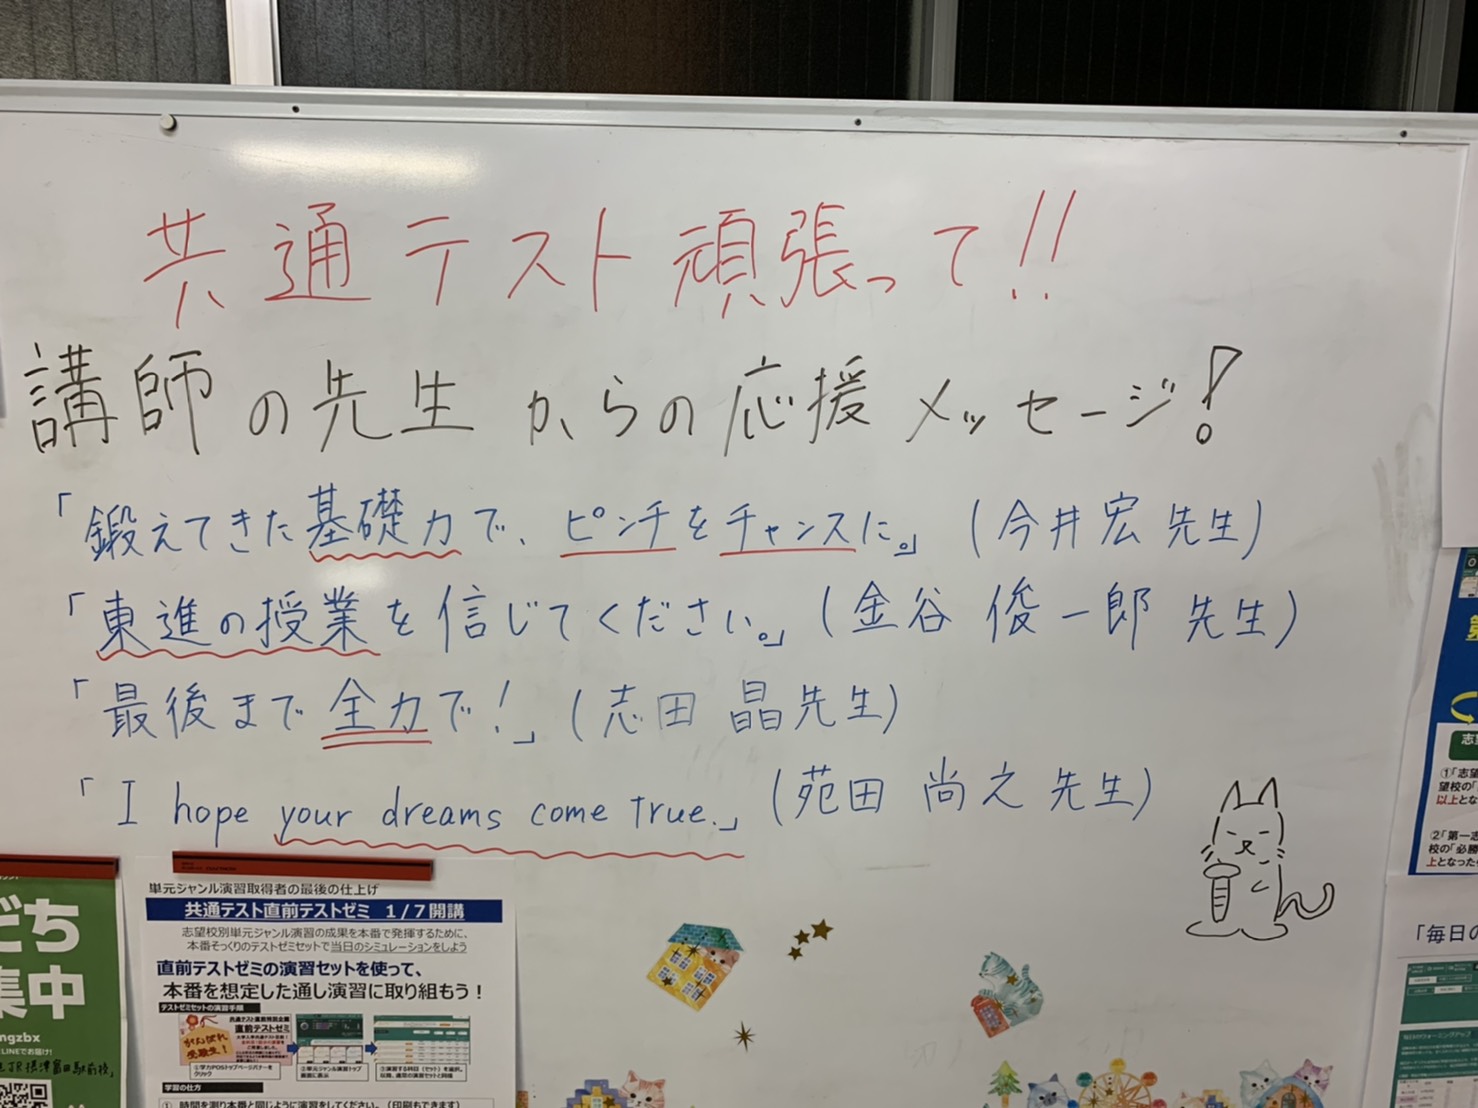 共通テスト頑張って!!
講師の先生からの応援メッセージ!
「鍛えてきた基礎力で、ピンチをチャンスに。」(今井宏先生)
「東進の授業を信じてください。」(金谷俊一郎 先生)
「最後まで全力で!」(志田 晶先生)
「I hope your dreams come true.」(苑田 尚之 先生)
だち
集中
ngzbx
LINEでお届け!
JR摂津富田駅前校」
単元ジャンル演習取得者の最後の仕上げ
共通テスト直前テストゼミ 1/7開講
志望校別単元ジャンル演習の成果を本番で発揮するために、
本番そっくりのテストゼミセットで当日のシミュレーションをしよう
直前テストゼミの演習セットを使って、
本番を想定した通し演習に取り組もう!
テストゼミセットの演習手順
直前テストゼミ
がんばれ
受験生!
①学力POSトップページバナーを
クリック
②単元ジャンル演習トップ
画面に表示
③演習する科目(セット)を選択。
学習の仕方
① 時間を測り本番と同じように演習をしてください。(印刷もできます)
志望
①「志望
望校の「
以上とな
②「第一志
校の「必勝
上となった
「毎日の